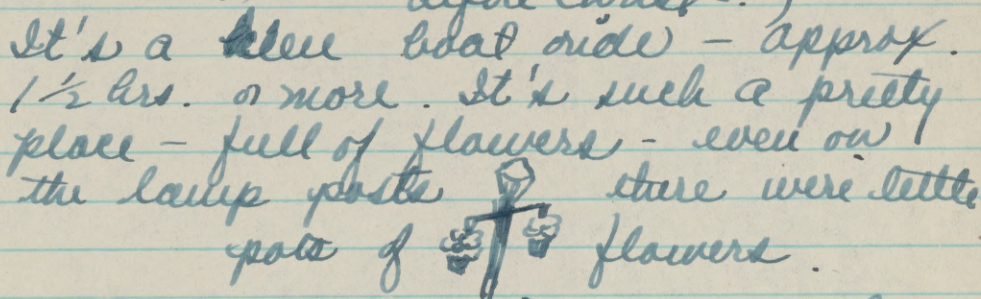 It's a boat ride – approx.
1½ hrs. or more. It's such a pretty
place – full of flowers – even on
the lamp posts there were little
pots of flowers.